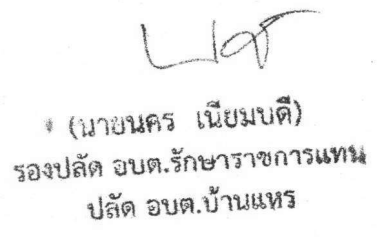 (นายนคร เนียมบดี)
รองปลัด อบต.รักษาราชการแทน
ปลัด อบต.บ้านแหร